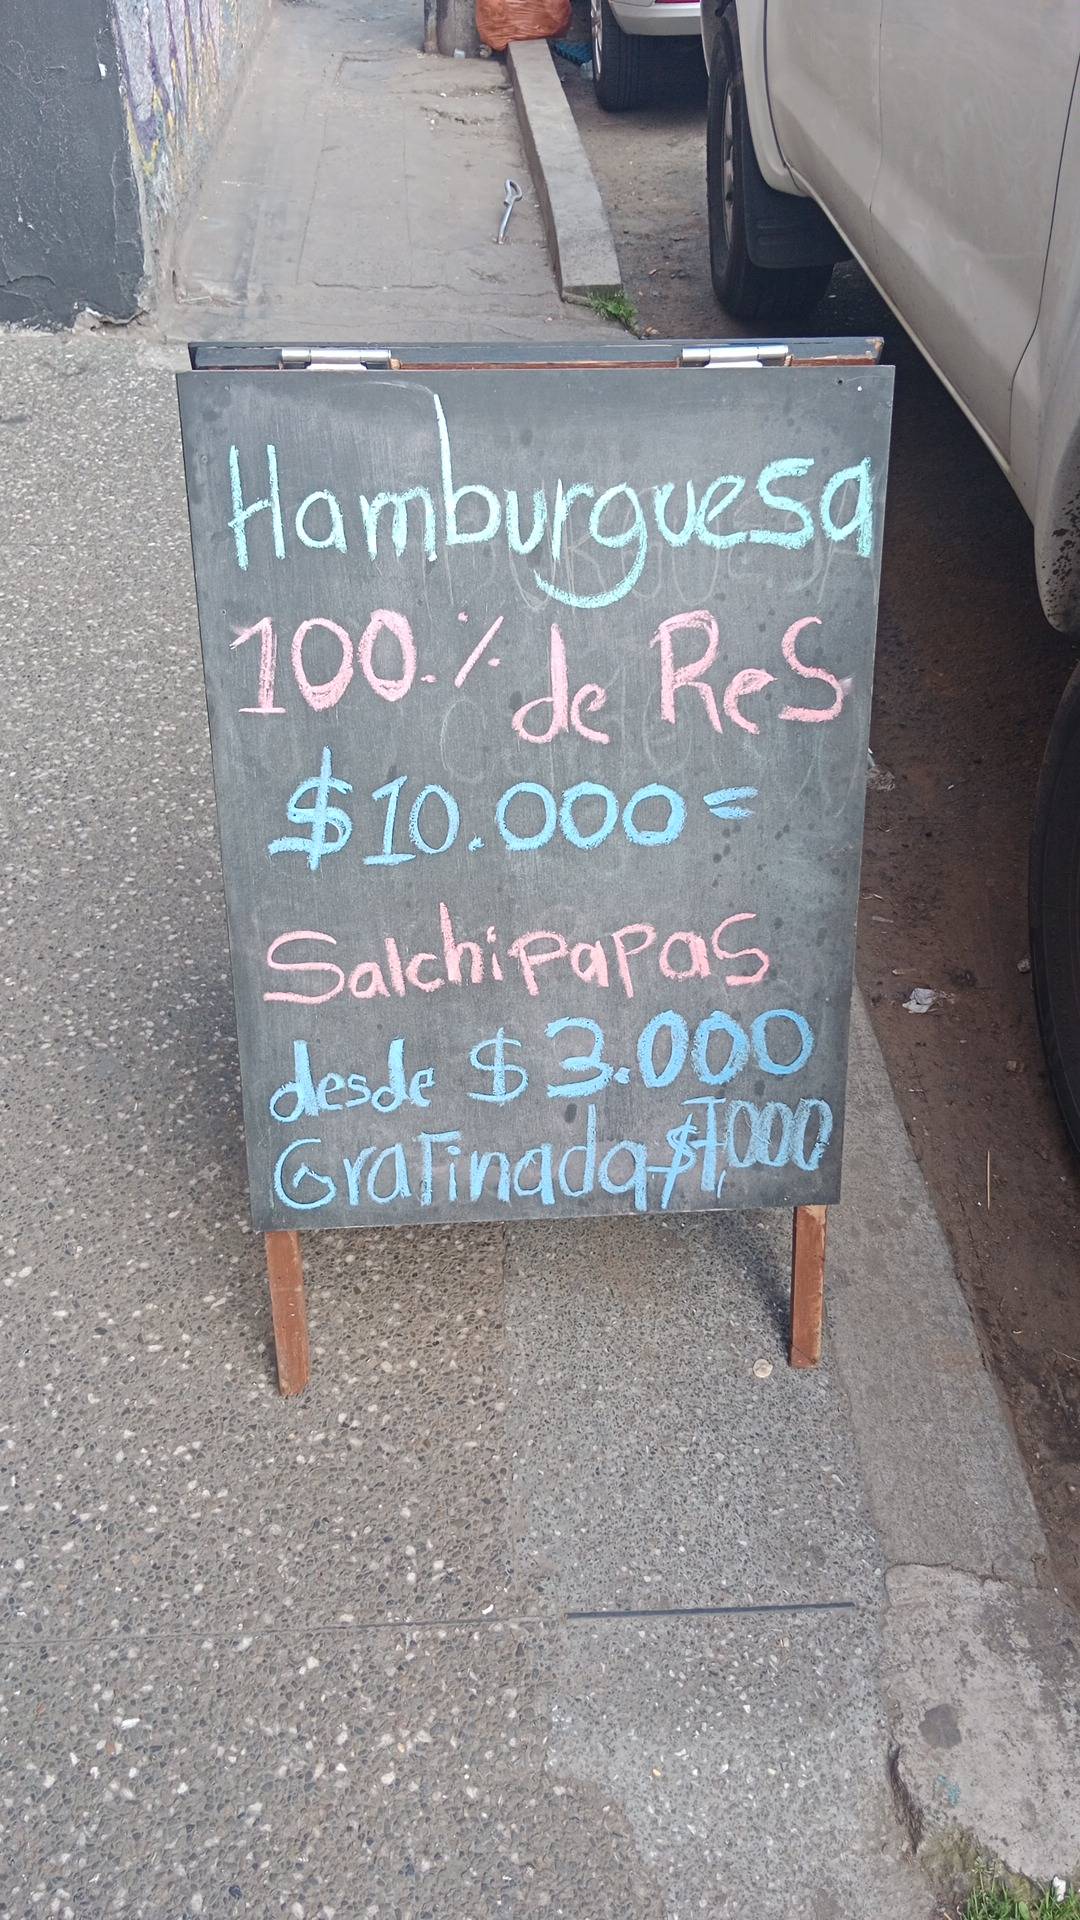 Hamburguesa
100.% de Res
$10.000=
Salchipapas
desde $3.000
Gratinada $7,000